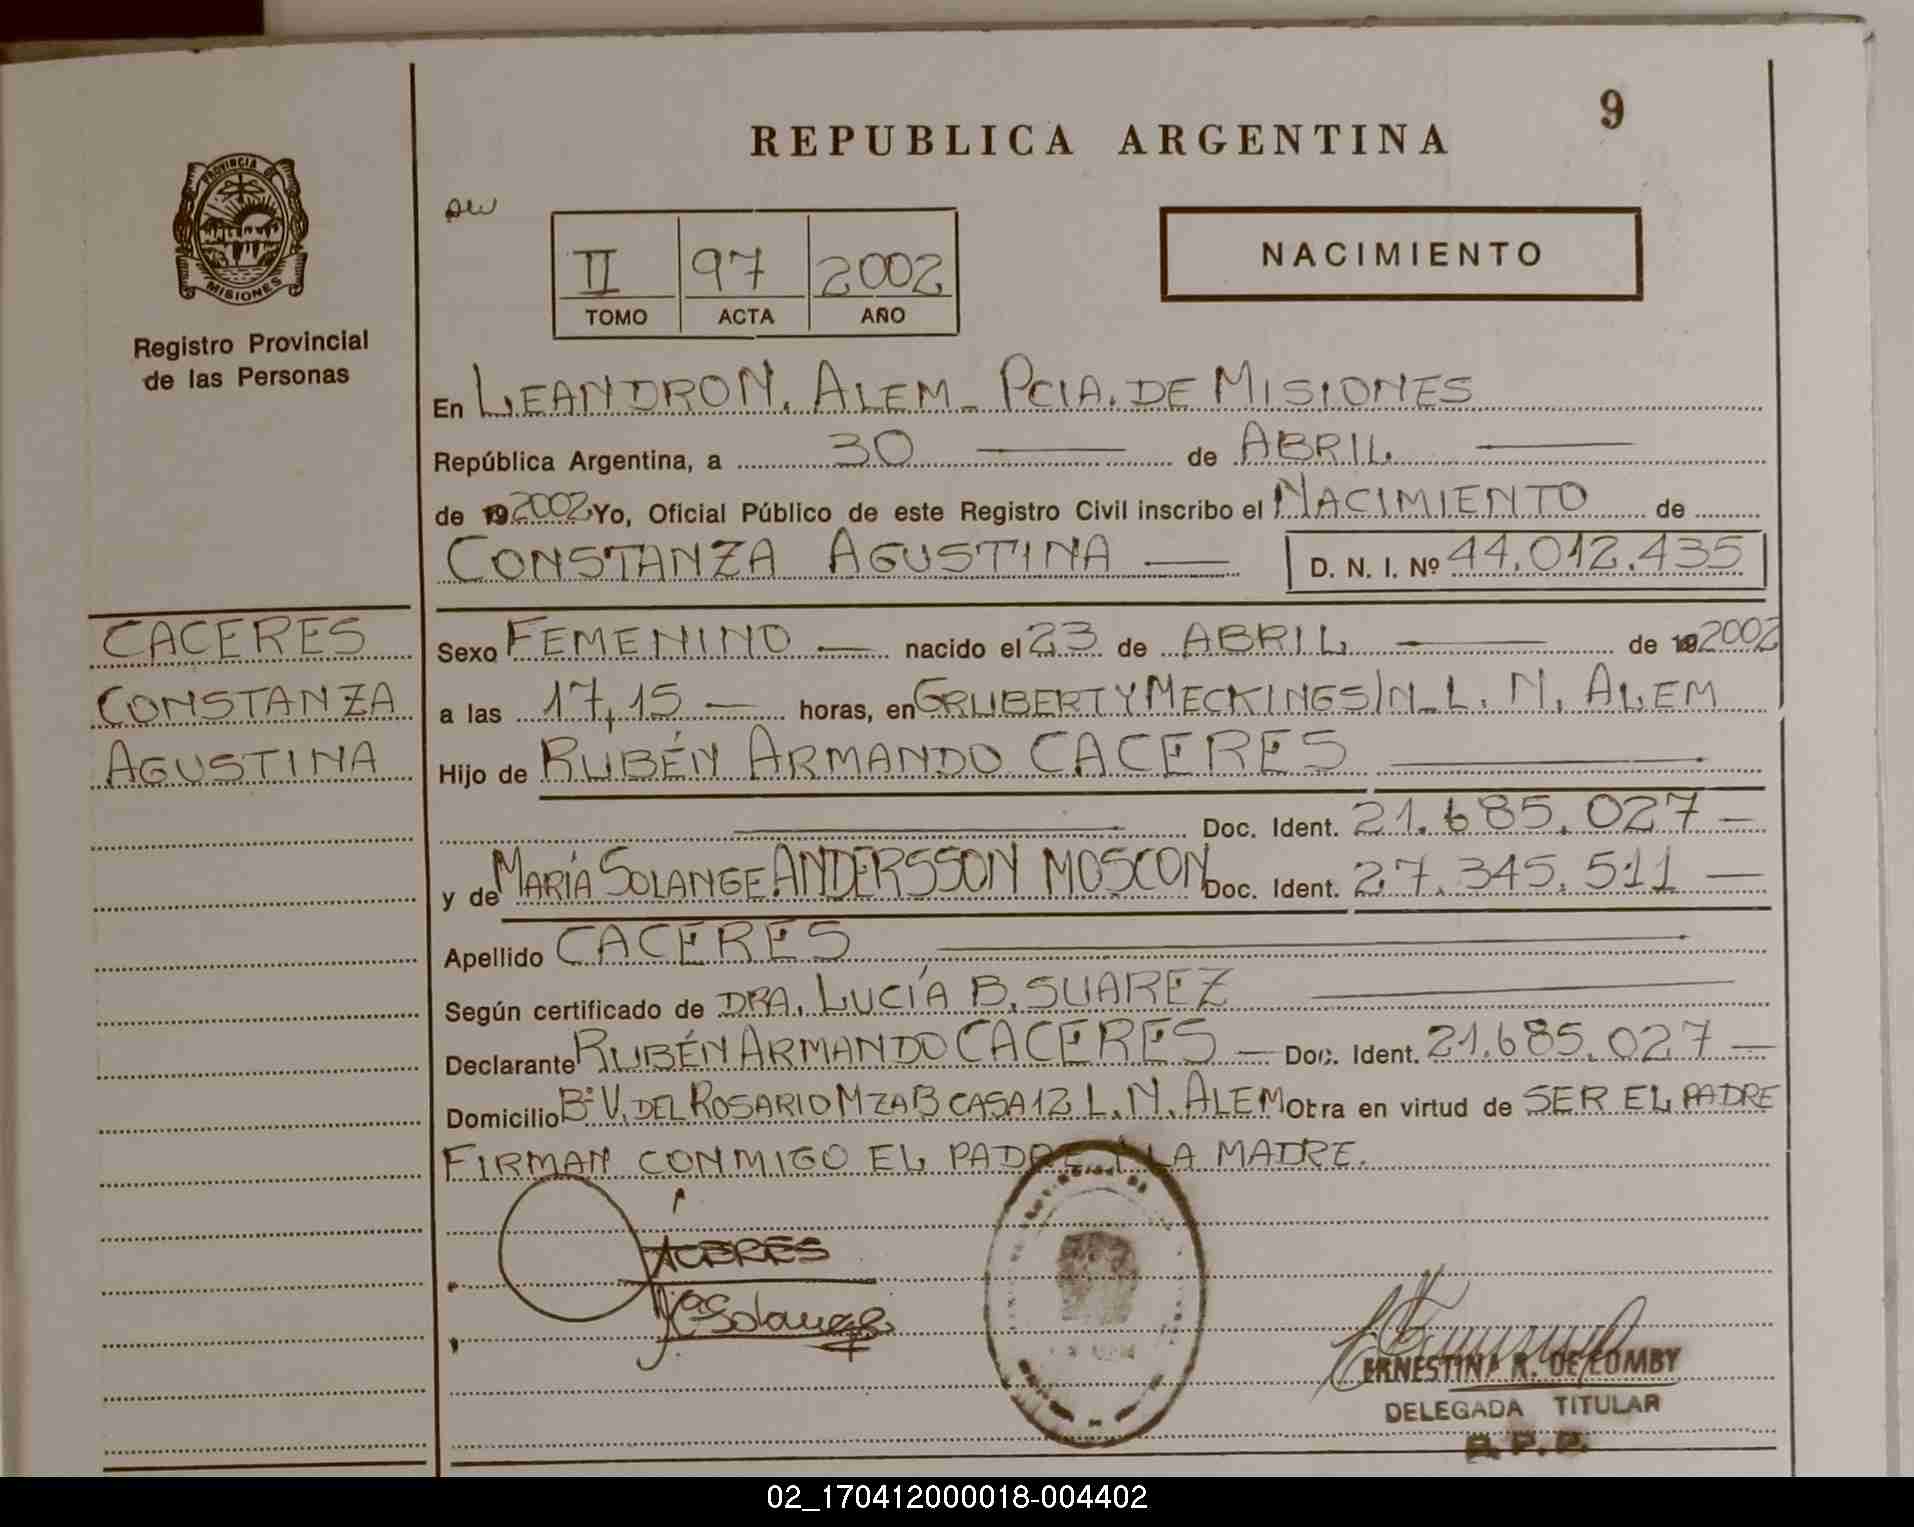 REPUBLICA ARGENTINA
9
PROVINCIA DE
MISIONES
Registro Provincial
de las Personas
II 97 2002
TOMO ACTA AÑO
NACIMIENTO
En LEANDRO N. ALEM - PCIA. DE MISIONES
República Argentina, a 30 de ABRIL
de 192002 Yo, Oficial Público de este Registro Civil inscribo el NACIMIENTO de
CONSTANZA AGUSTINA D. N. I. Nº 44.012.435
CACERES
CONSTANZA
AGUSTINA
Sexo FEMENINO nacido el 23 de ABRIL de 192002
a las 17,15 horas, en GRUBERT Y MECKING S/N - L. N. ALEM
Hijo de RUBÉN ARMANDO CACERES
Doc. Ident. 21.685.027
y de MARÍA SOLANGE ANDERSSON MOSCON Doc. Ident. 27.345.511
Apellido CACERES
Según certificado de DRA. LUCÍA B. SUAREZ
Declarante RUBÉN ARMANDO CACERES Doc. Ident. 21.685.027
Domicilio Bº V. DEL ROSARIO MZA B CASA 12 L. N. ALEM Obra en virtud de SER EL PADRE
FIRMAN CONMIGO EL PADRE Y LA MADRE.
CACERES
Mª Solange
ERNESTINA R. DE LOMBY
DELEGADA TITULAR
R.P.P.
02_170412000018-004402